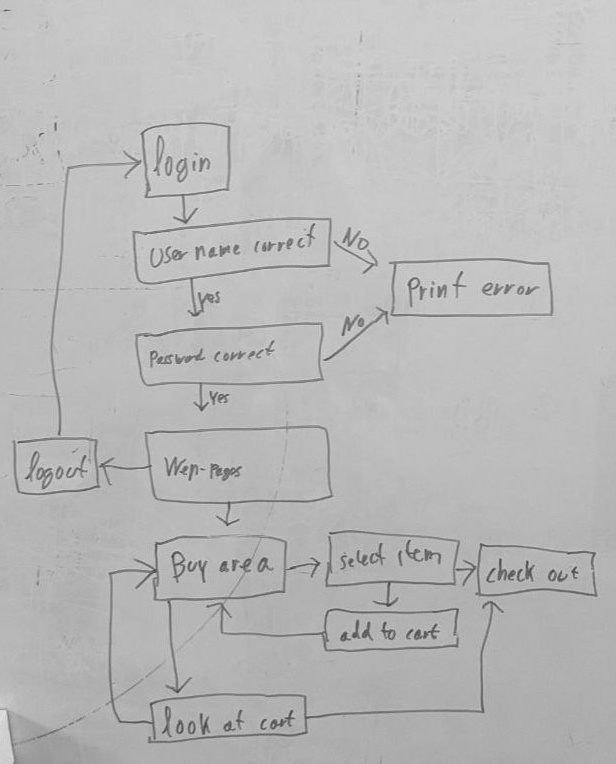 login
User name correct
No
Print error
yes
Password correct
No
Yes
logout
Wep-pages
Buy area
select item
check out
add to cart
look at cart